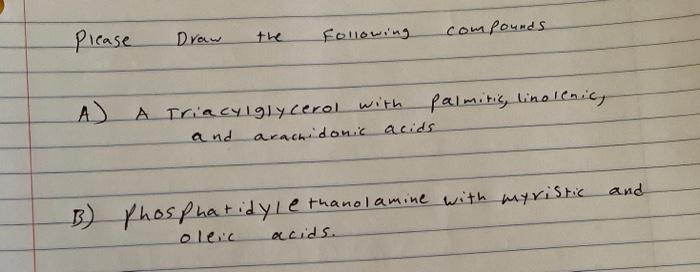 Please Draw the Following compounds
A) A Triacylglycerol with palmitic, linolenic,
and arachidonic acids
B) Phosphatidylethanolamine with myristic and
oleic acids.